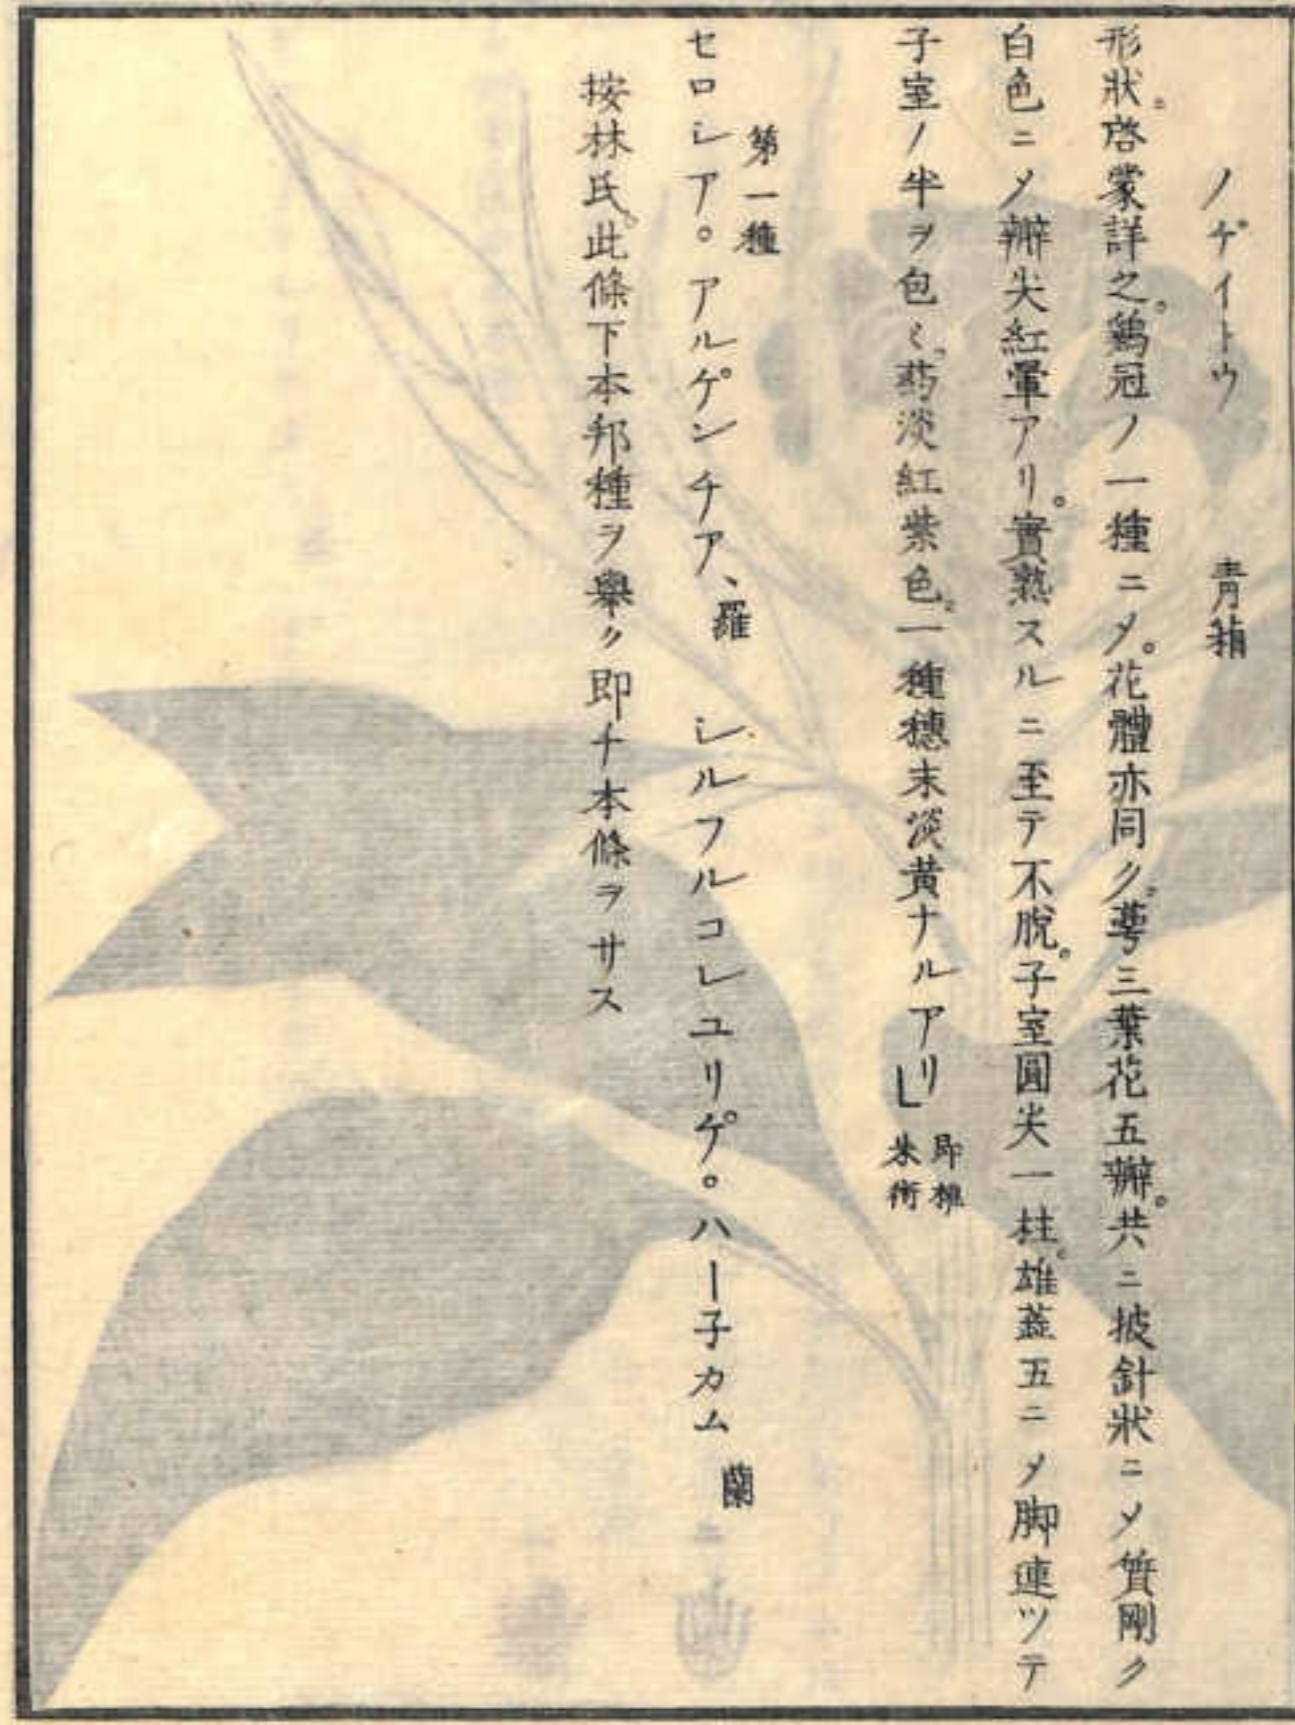 ノゲイトウ　青葙
形狀。啓蒙詳之。鷄冠ノ一種ニメ。花體亦同ク。蕚三葉花五瓣。共ニ披針狀ニメ質剛ク
白色ニメ瓣尖紅暈アリ。實熟スルニ至テ不脫。子室圓尖一柱。雄蕋五ニメ脚連ツテ
子室ノ半ヲ包ミ。葯淡紅紫色。一種穗末淡黃ナルアリ」
第一種
セロシア。アルゲンチア、羅　シルフルコレユリゲ。ハー子カム　蘭
按林氏。此條下本邦種ヲ擧ク即チ本條ヲサス